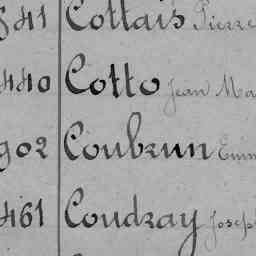 541 Collais Pierre
440 Cotto Jean Ma
902 Coubrun Emm
461 Coudray Joseph